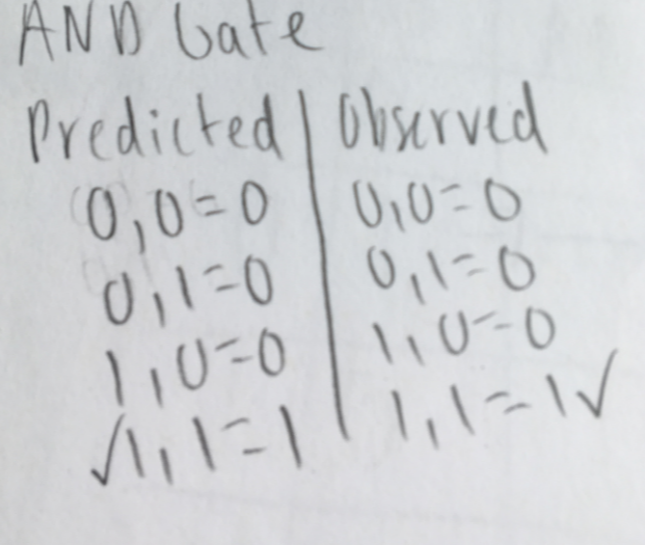 AND Gate
Predicted | Observed
0,0=0 | 0,0=0
0,1=0 | 0,1=0
1,0=0 | 1,0=0
√1,1=1 | 1,1=1√